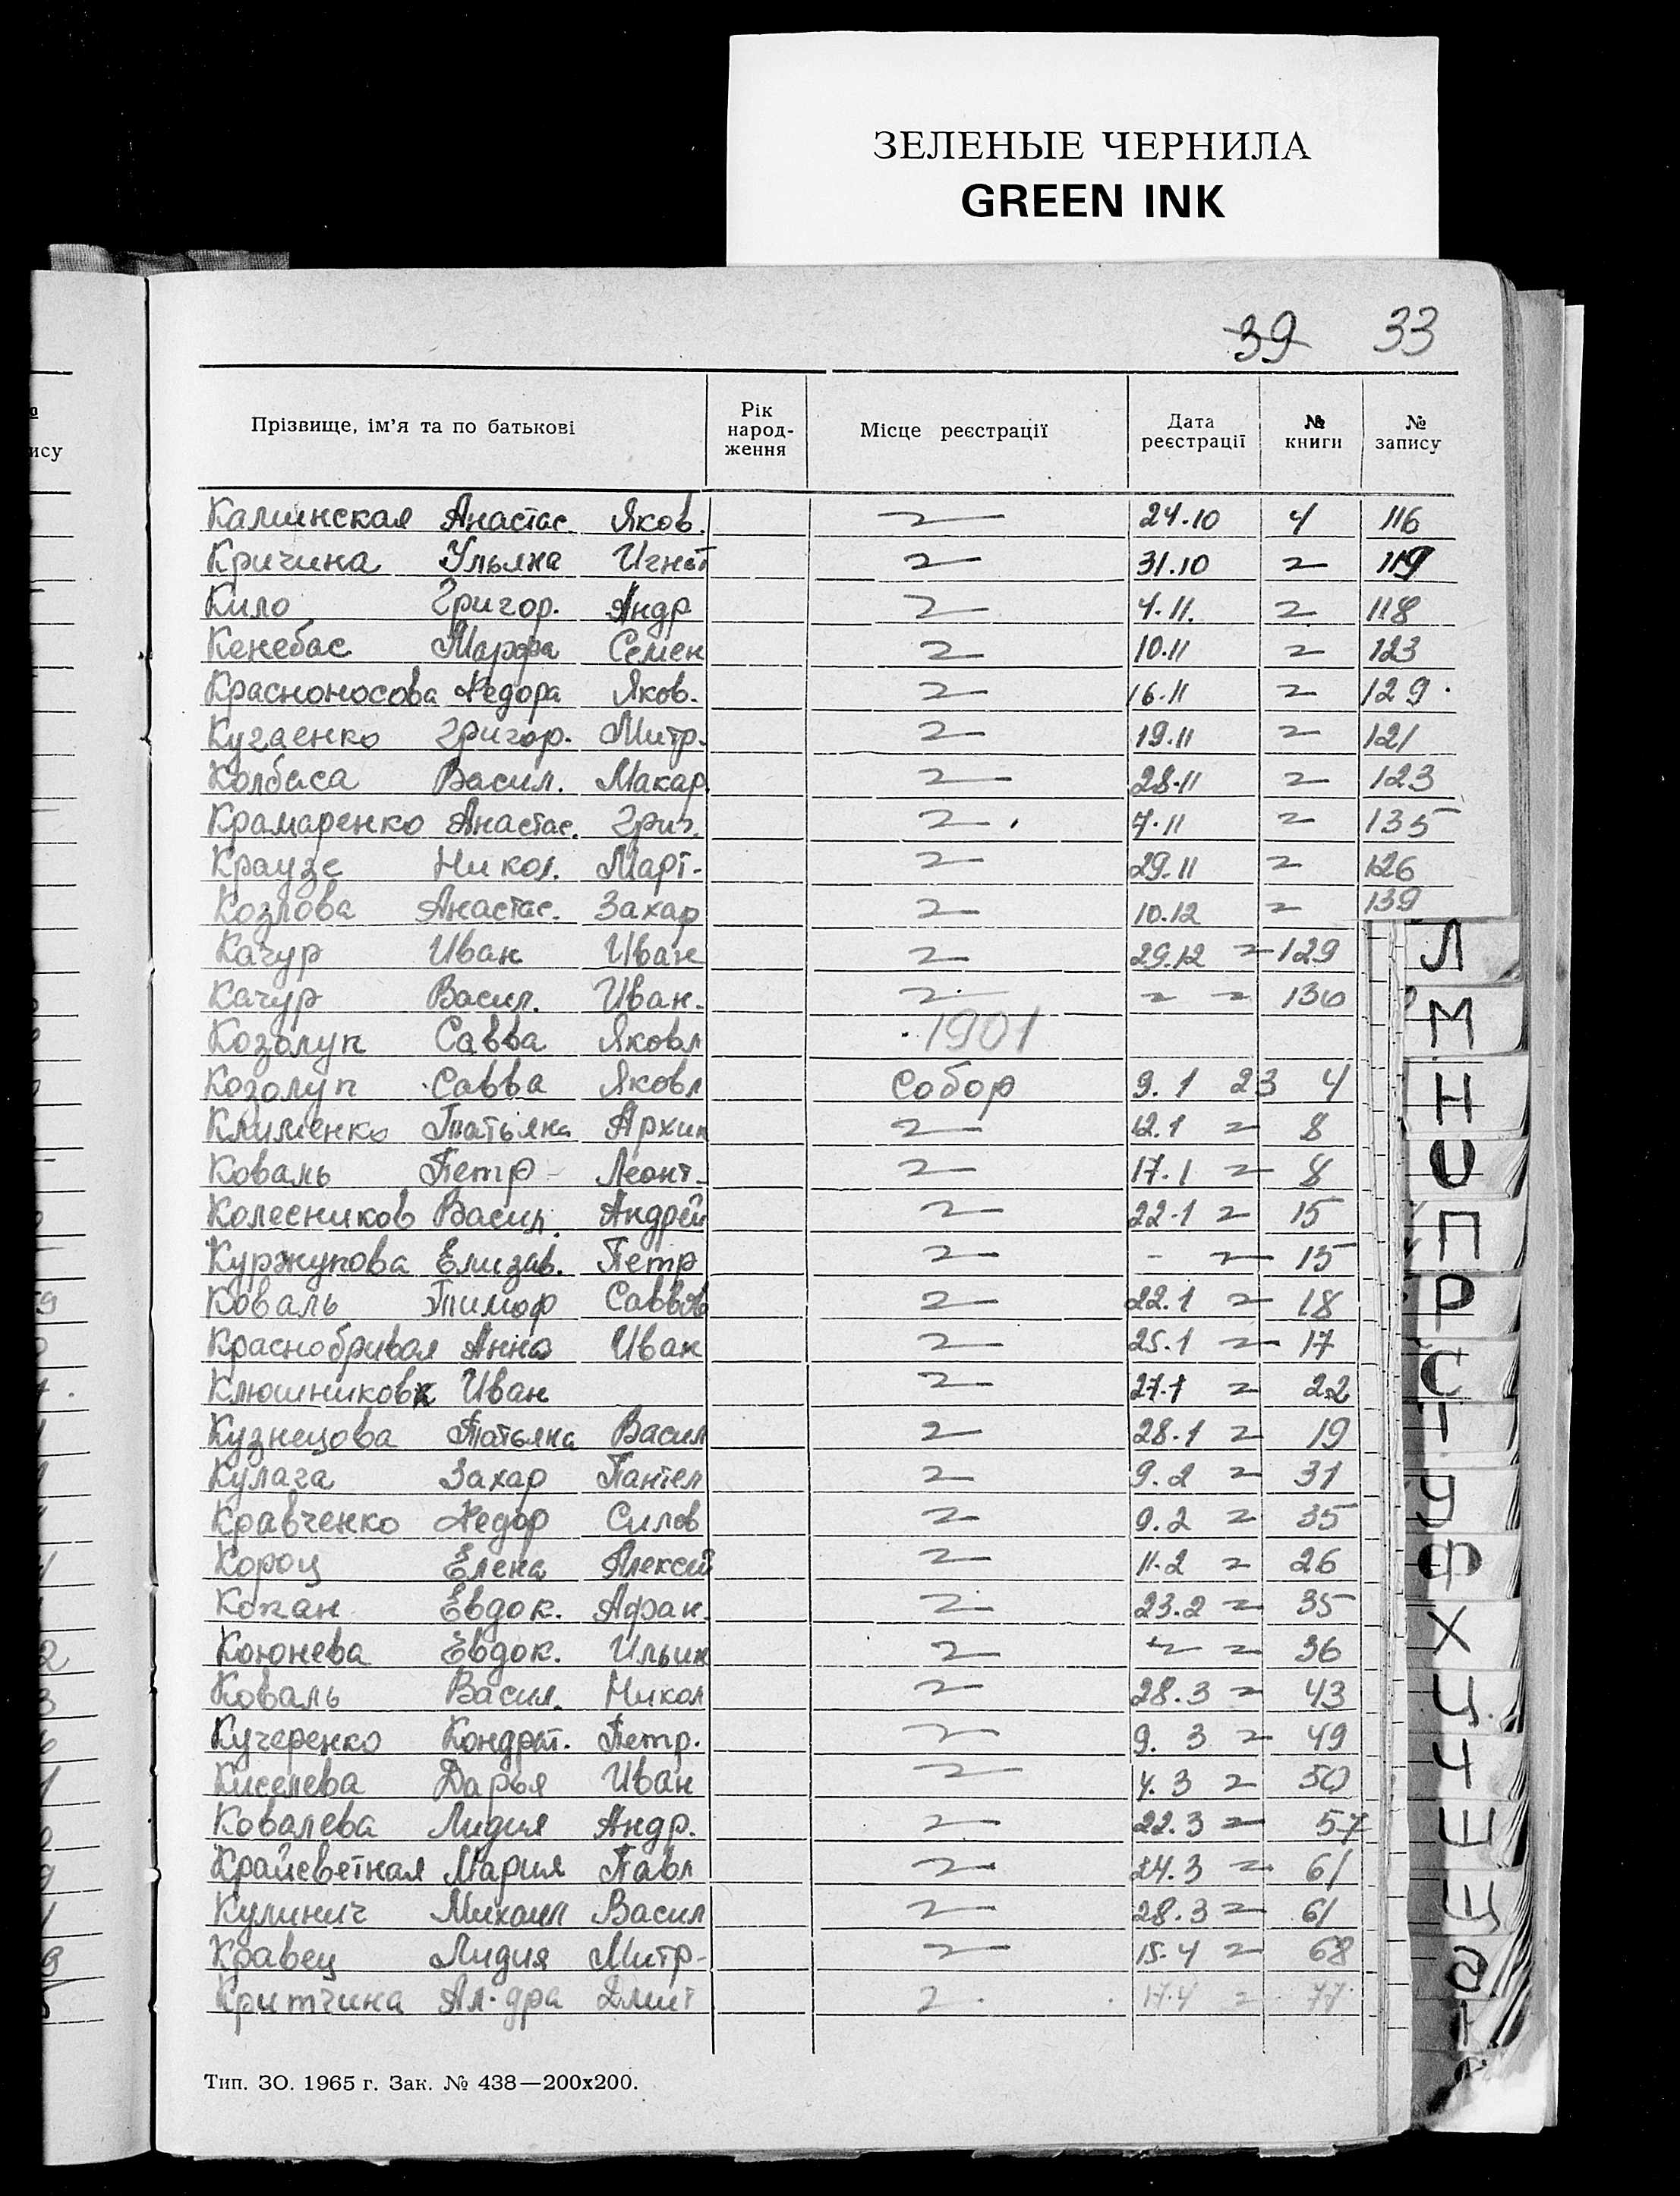 ЗЕЛЕНЫЕ ЧЕРНИЛА
GREEN INK
39 33
Прізвище, ім'я та по батькові Рік народ-ження Місце реєстрації Дата реєстрації № книги № запису
Калинская Анастас. Яков. 24.10 4 116
Кричина Ульяна Игнат 31.10 119
Кило Григор. Андр 4.11. 118
Кенебас Марфа Семен 10.11 123
Красноносова Федора Яков. 16.11 129
Кугаенко Григор. Митр. 19.11 121
Колбаса Васил. Макар. 28.11 123
Крамаренко Анастас. Григ. 7.11 135
Краузе Никол. Март. 29.11 126
Козлова Анастас. Захар 10.12 139
Качур Иван Иван 29.12 129
Качур Васил. Иван. 130
Козолуп Савва Яковл 1901
Козолуп Савва Яковл Собор 9.1 23 4
Клименко Татьяна Архип 12.1 8
Коваль Петр Леонт. 17.1 8
Колесников Васил. Андрей 22.1 15
Куржупова Елизав. Петр 15
Коваль Тимоф Саввов 22.1 18
Краснобривая Анна Иван 25.1 17
Клюшников Иван 27.1 22
Кузнецова Татьяна Васил 28.1 19
Кулага Захар Пантел 9.2 31
Кравченко Федор Силов 9.2 35
Короц Елена Алексей 11.2 26
Копан Евдок. Афан. 23.2 35
Коюнева Евдок. Ильин 36
Коваль Васил. Никол 28.3 43
Кучеренко Кондрат. Петр. 9.3 49
Киселева Дарья Иван 4.3 50
Ковалева Лидия Андр. 22.3 57
Крайсветная Мария Павл 24.3 61
Кулинич Михаил Васил 28.3 61
Кравец Лидия Митр. 15.4 68
Критчина Ал-дра Дмит 17.4 77
Тип. ЗО. 1965 г. Зак. № 438—200х200.
Л
М
Н
О
П
Р
С
Т
У
Ф
Х
Ц
Ч
Ш
Щ